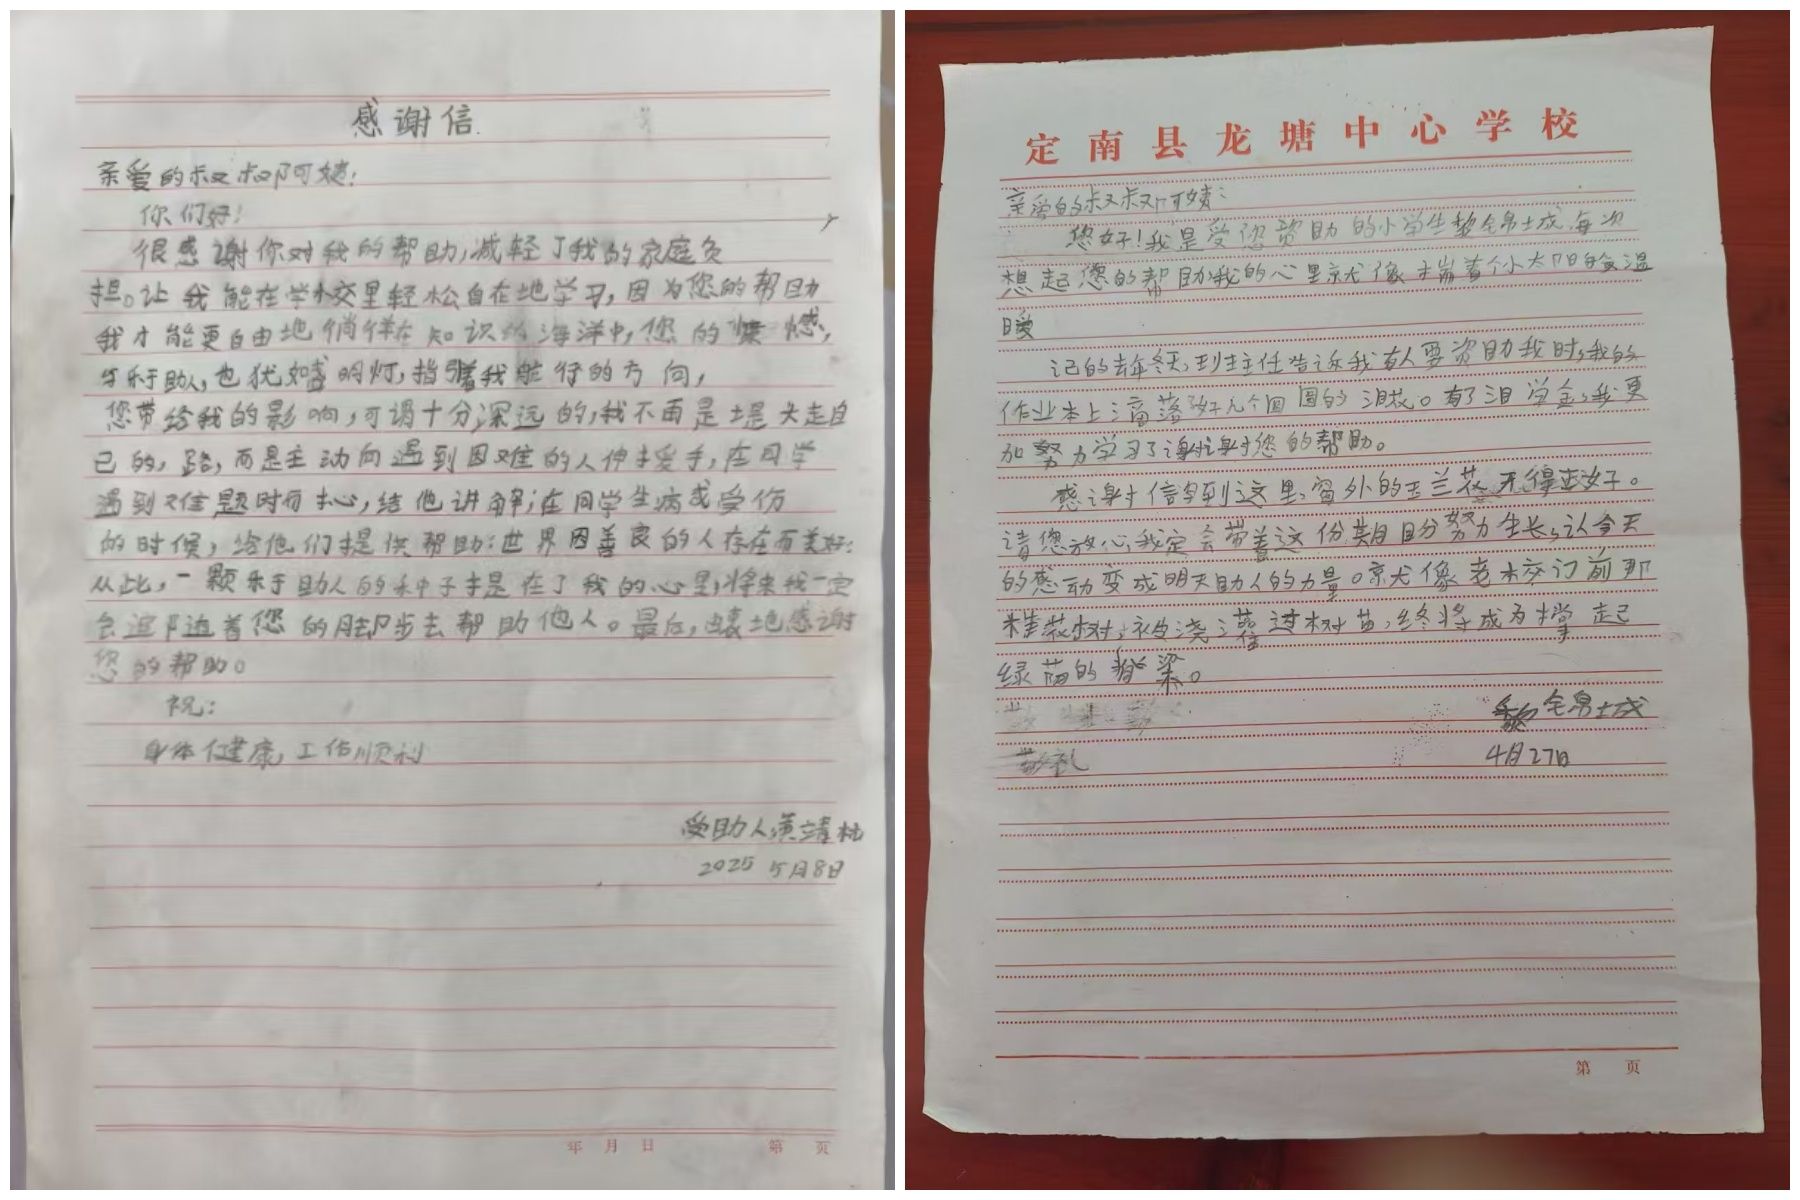 感谢信
亲爱的叔叔阿姨:
你们好!
很感谢你对我的帮助,减轻了我的家庭负
担。让我能在学校里轻松自在地学习,因为您的帮助
我才能更自由地徜徉在知识的海洋中,您的慷慨,
乐于助人,也犹如盏明灯,指引着我航行的方向,
您带给我的影响,可谓十分深远的,我不再是埋头走自
己的,路,而是主动向遇到困难的人伸援手,在同学
遇到难题时耐心,给他讲解;在同学生病或受伤
的时候,给他们提供帮助:世界因善良的人存在而美好:
从此,一颗乐于助人的种子埋在了我的心里,将来我一定
会追随着您的脚步去帮助他人。最后,地感谢
您的帮助。
祝:
身体健康,工作顺利
受助人:黄靖
2025 5月8日
年 月 日 第 页
定南县龙塘中心学校
亲爱的叔叔阿姨:
您好!我是受您资助的小学生黎帛士成,每次
想起您的帮助我的心里就像揣着个小太阳温
暖
记的去年冬天,班主任告诉我有人要资助我时,我的
作业本上滴落好几个圆圆的泪花。有了助学金,我更
加努力学习了谢谢您的帮助。
感谢信写到这里,窗外的玉兰花开得正好。
请您放心,我定会带着这份期盼努力生长,让今天
的感动变成明天助人的力量。就像老校门前那
桂花树,被浇灌过树苗,终将成为撑起
绿荫的脊梁。
敬礼
4月27日
第 页